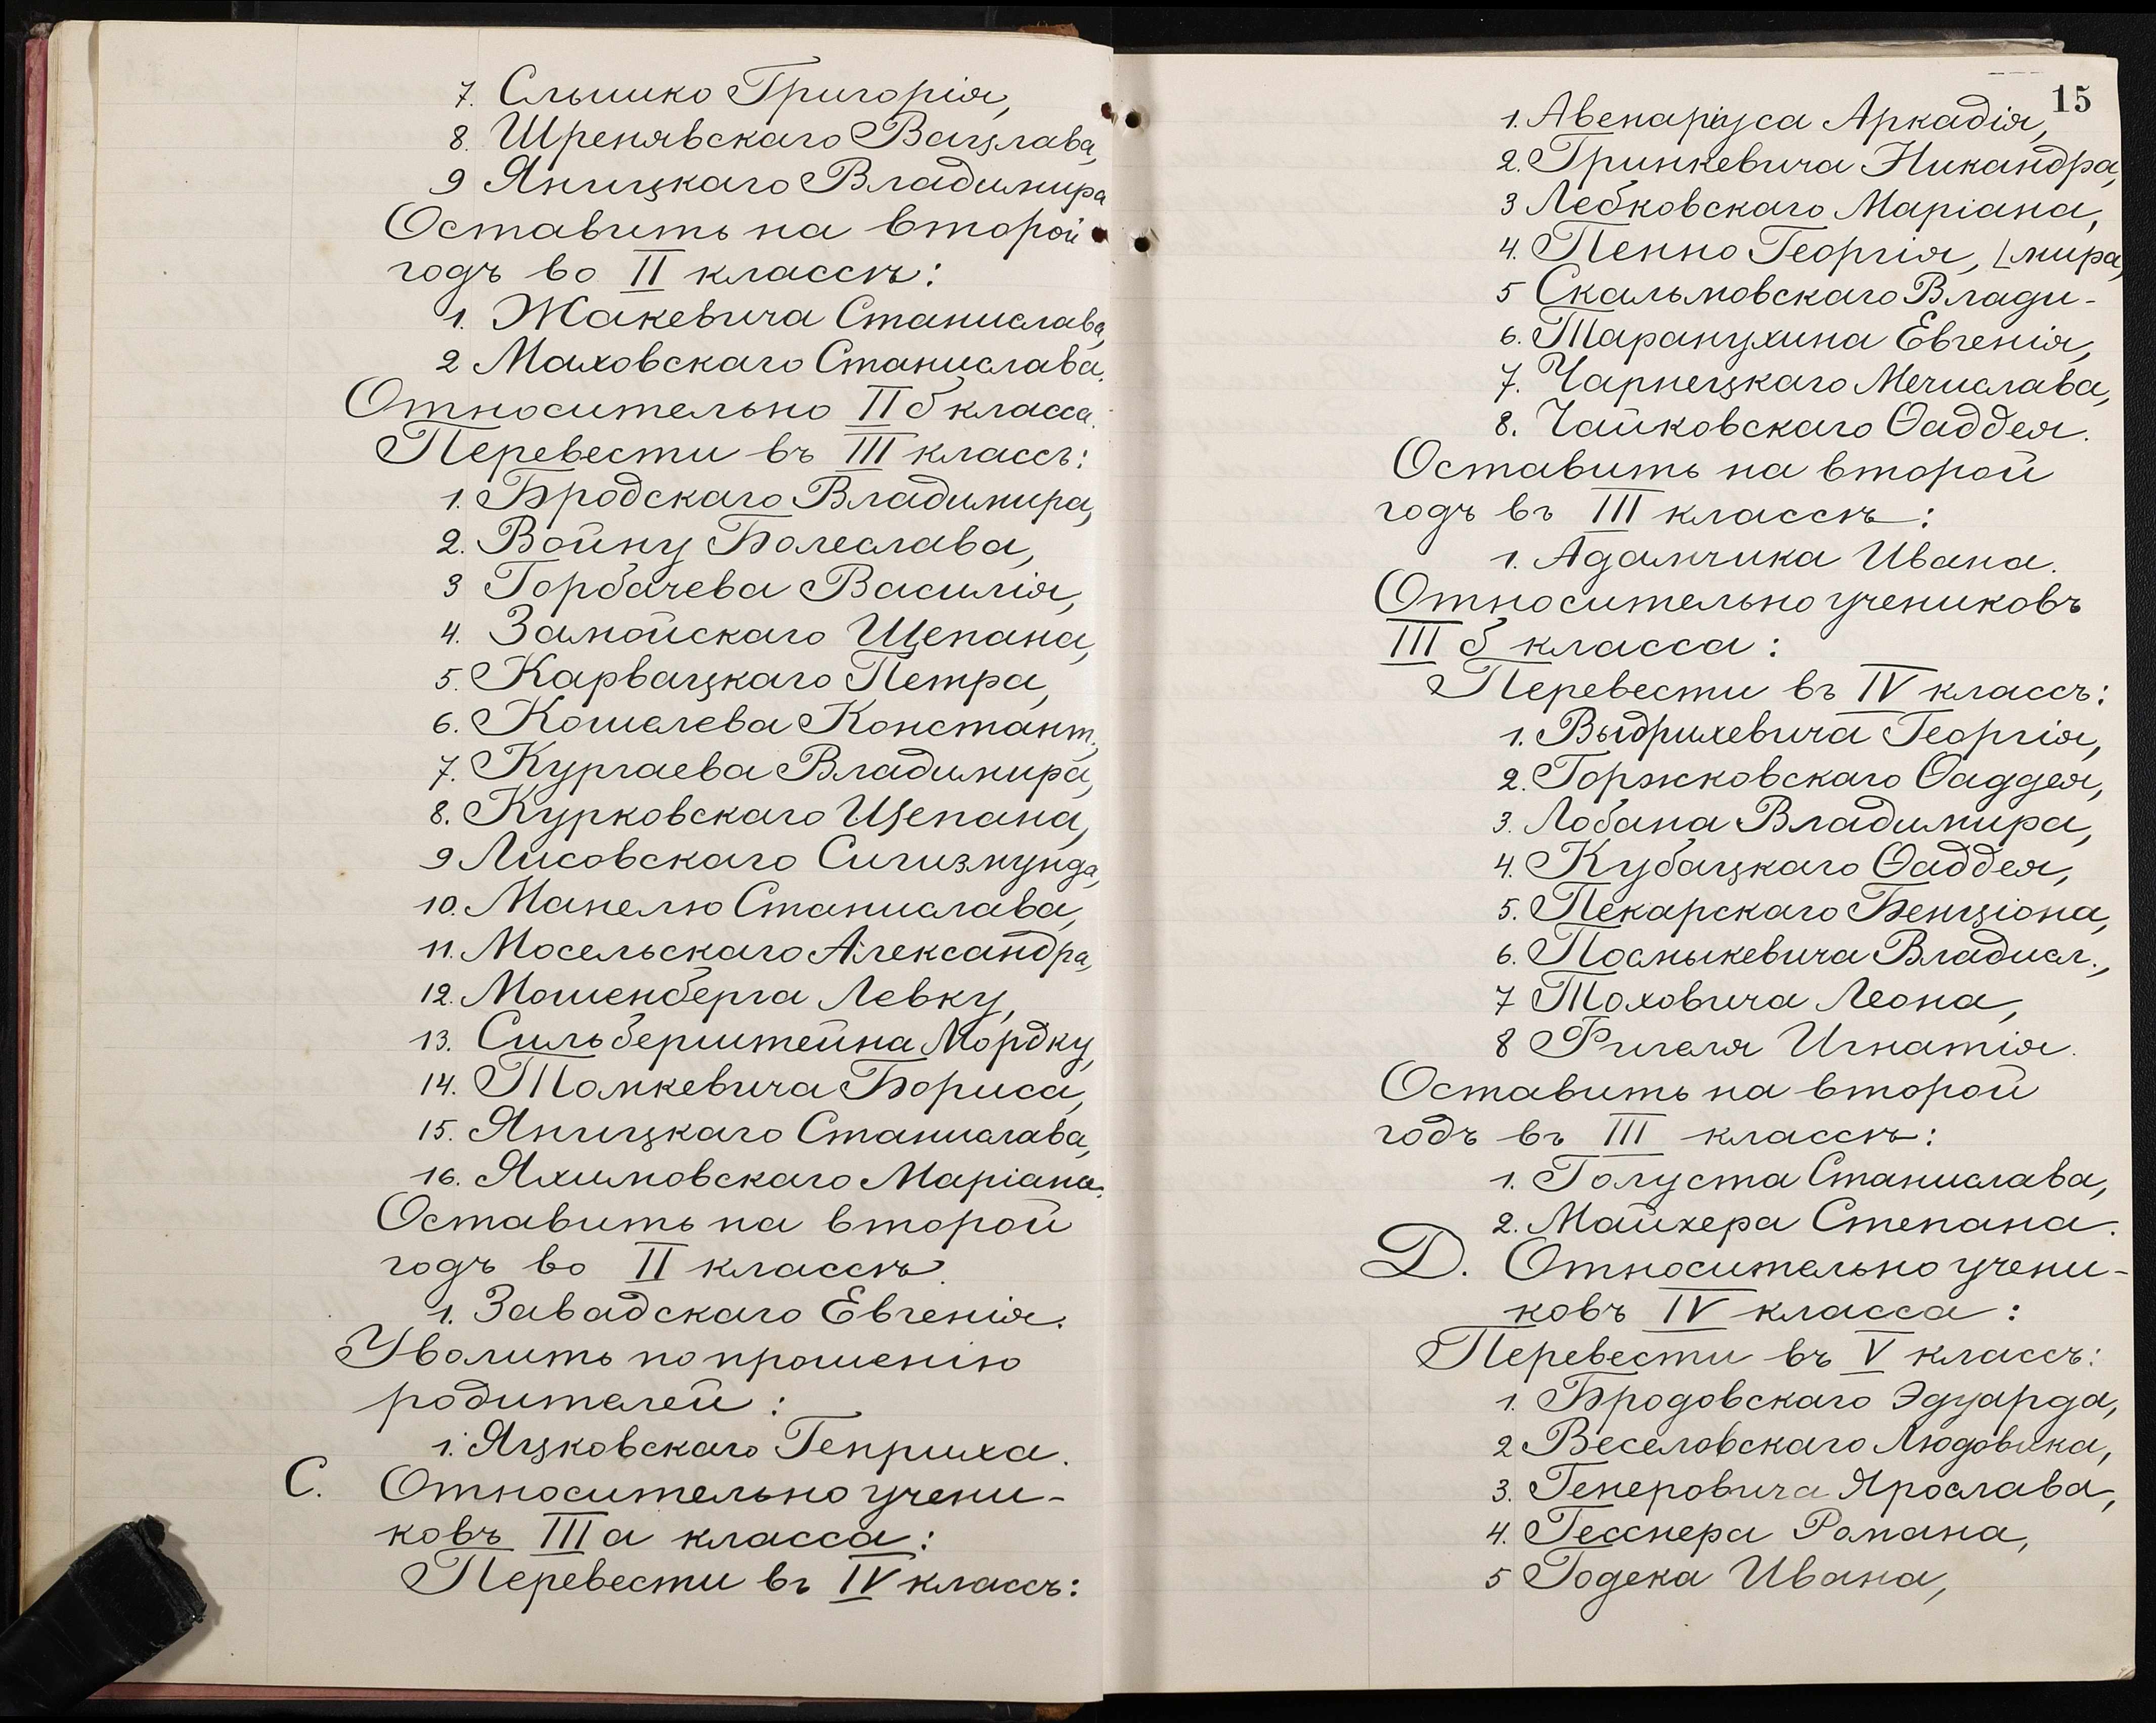 7. Слышко Григорія,
8. Шренявскаго Вацлава,
9 Яницкаго Владимира
Оставить на второй
годъ во II классѣ:
1. Жакевича Станислава,
2 Маховскаго Станислава.
Относительно II б класса.
Перевести въ III классъ:
1. Бродскаго Владимира,
2. Войну Болеслава,
3 Горбачева Василія,
4. Замойскаго Щепана,
5. Карвацкаго Петра,
6. Кошелева Констант.,
7. Кургаева Владимира,
8. Курковскаго Щепана,
9 Лисовскаго Сигизмунда,
10. Манелю Станислава,
11. Мосельскаго Александра,
12. Мошенберга Левку,
13. Сильберштейна Мордку,
14. Томкевича Бориса,
15. Яницкаго Станислава,
16. Яхимовскаго Маріана.
Оставить на второй
годъ во II классѣ.
1. Завадскаго Евгенія.
Уволить по прошенію
родителей:
1. Яцковскаго Генриха.
С. Относительно учени-
ковъ III а класса:
Перевести въ IV классъ:
15
1. Авенаріуса Аркадія,
2. Гринкевича Никандра,
3 Лебковскаго Маріана,
4. Пенно Георгія, [мира,
5 Скальмовскаго Влади-
6. Таранухина Евгенія,
7. Чарнецкаго Мечислава,
8. Чайковскаго Ѳаддея.
Оставить на второй
годъ въ III классѣ:
1. Адамчика Ивана.
Относительно учениковъ
III б класса:
Перевести въ IV классъ:
1. Выдрихевича Георгія,
2. Горжковскаго Ѳаддея,
3. Лобана Владимира,
4. Кубацкаго Ѳаддея,
5. Пекарскаго Бенціона,
6. Посмыкевича Владисл.,
7 Тоховича Леона,
8 Фигеля Игнатія.
Оставить на второй
годъ въ III классѣ:
1. Голуста Станислава,
2. Майхера Степана.
D. Относительно учени-
ковъ IV класса:
Перевести въ V классъ:
1. Бродовскаго Эдуарда,
2 Веселовскаго Людовика,
3. Генеровича Ярослава,
4. Гесснера Романа,
5 Годека Ивана,